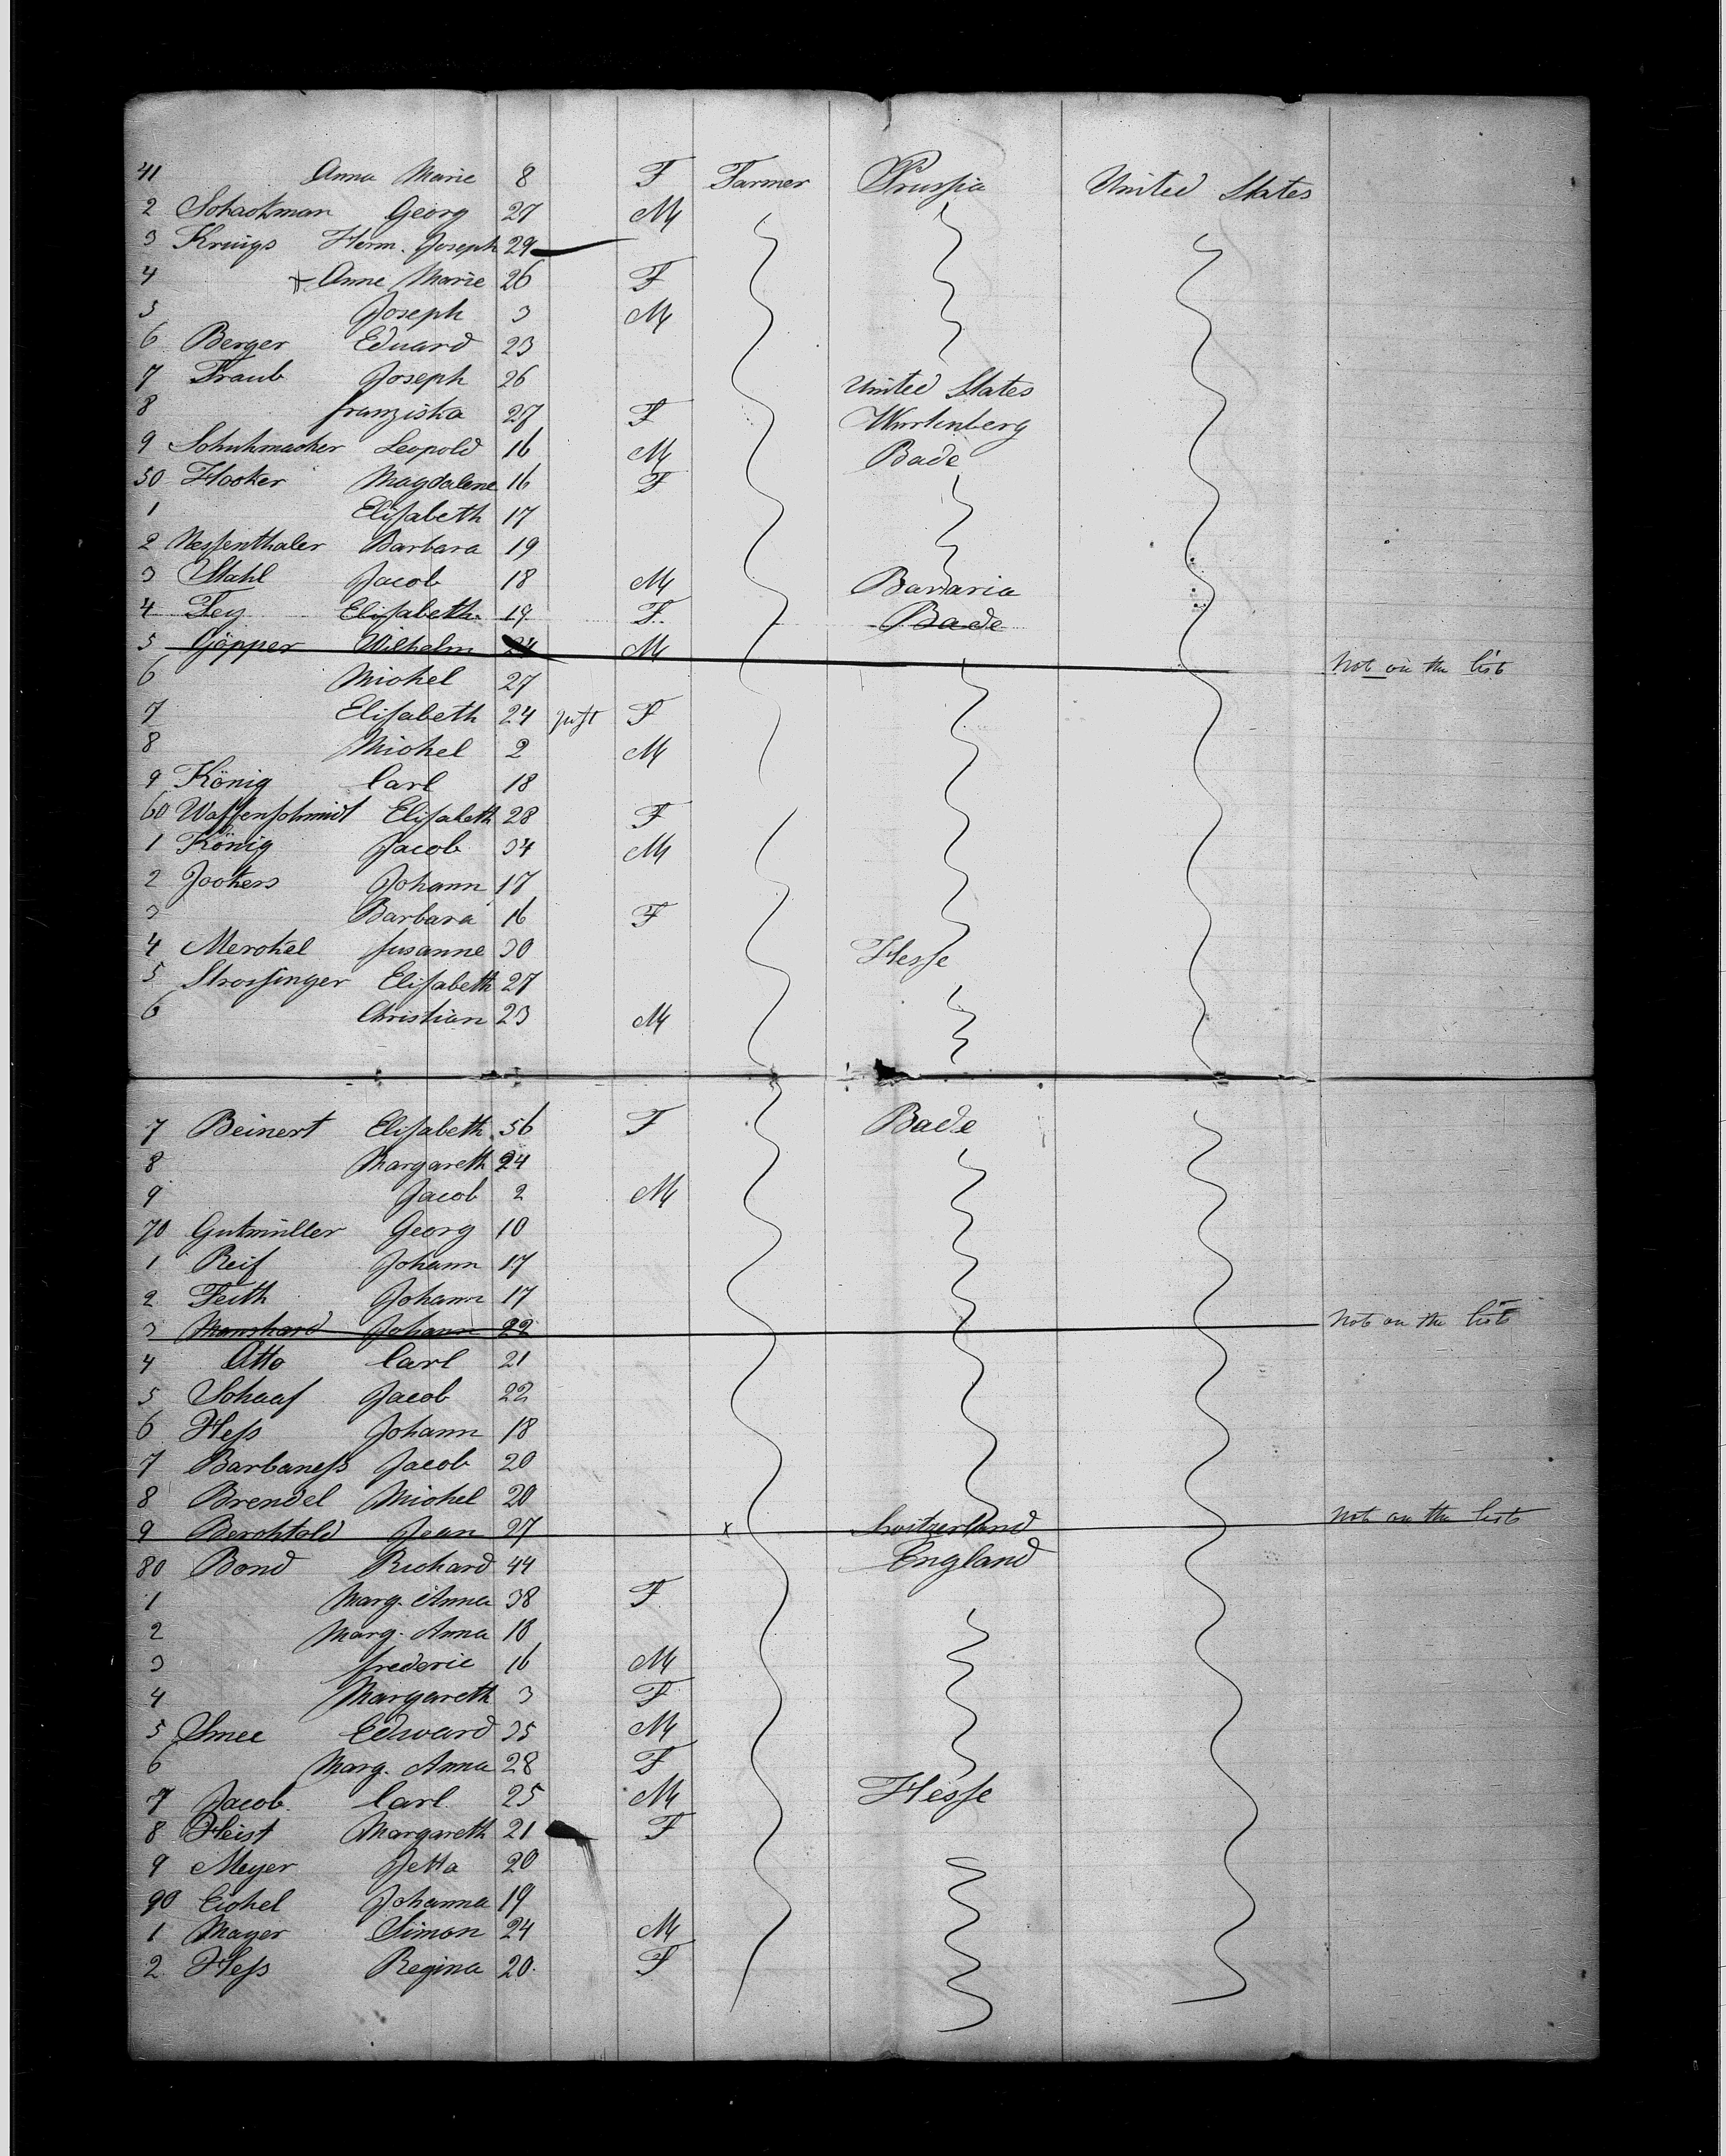 41 Anna Marie 8 F Farmer Prussia United States
2 Schackman Georg 27 M
3 Krings Herm. Joseph 29
4 Anne Marie 26 F
5 Joseph 3 M
6 Berger Eduard 23
7 Traub Joseph 26 United States
8 franziska 27 F Wurtenberg
9 Schuhmacher Leopold 16 M Bade
50 Hooker Magdalene 16 F
1 Elisabeth 17
2 Nessenthaler Barbara 19
3 Stahl Jacob 18 M Bavaria
4 Fey Elisabeth 19 F. Bade
5 Göpper Wilhelm 24 M Not on the list
6 Michel 27
7 Elisabeth 24 F
8 Michel 2 M
9 König Carl 18
60 Waffenschmidt Elisabeth 28 F
1 König Jacob 34 M
2 Jockers Johann 17
3 Barbara 16 F
4 Merckel susanne 30 Hesse
5 Strossinger Elisabeth 27
6 Christian 23 M
7 Beinert Elisabeth 56 F Bade
8 Margareth 24
9 Jacob 2 M
70 Gutmüller Georg 10
1 Reif Johann 17
2 Feith Johann 17
3 Manshard Johann 22 Not on the list
4 Otto Carl 21
5 Schaaf Jacob 22
6 Hess Johann 18
7 Barbaness Jacob 20
8 Brendel Michel 20
9 Berchtold Jean 27 x Switzerland Not on the list
80 Bond Richard 44 England
1 Marg. Anna 38 F
2 Marg. Anna 18
3 frederic 16 M
4 Margareth 3 F
5 Smee Edward 35 M
6 Marg. Anna 28 F
7 Jacob Carl 25 M Hesse
8 Heist Margareth 21 F
9 Meyer Jetta 20
90 Eichel Johanna 19
1 Mayer Simon 24 M
2 Hess Regina 20. F